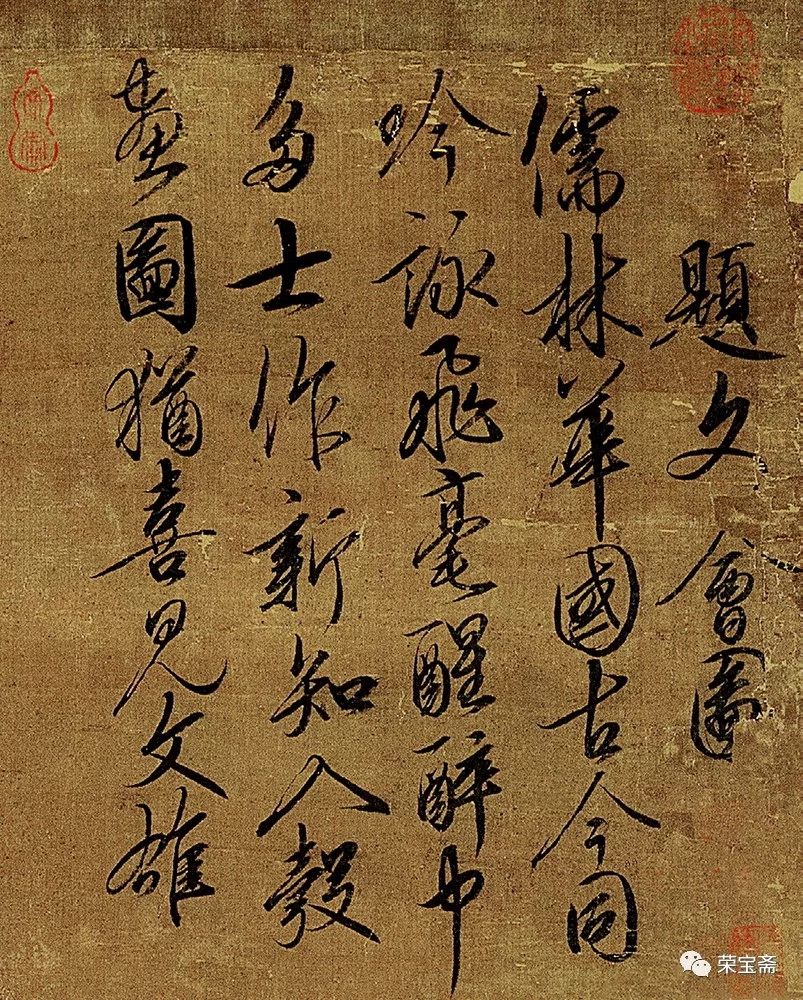 題文會圖
儒林華國古今同
吟詠飛毫醒醉中
多士作新知入彀
畫圖猶喜見文雄
荣宝斋